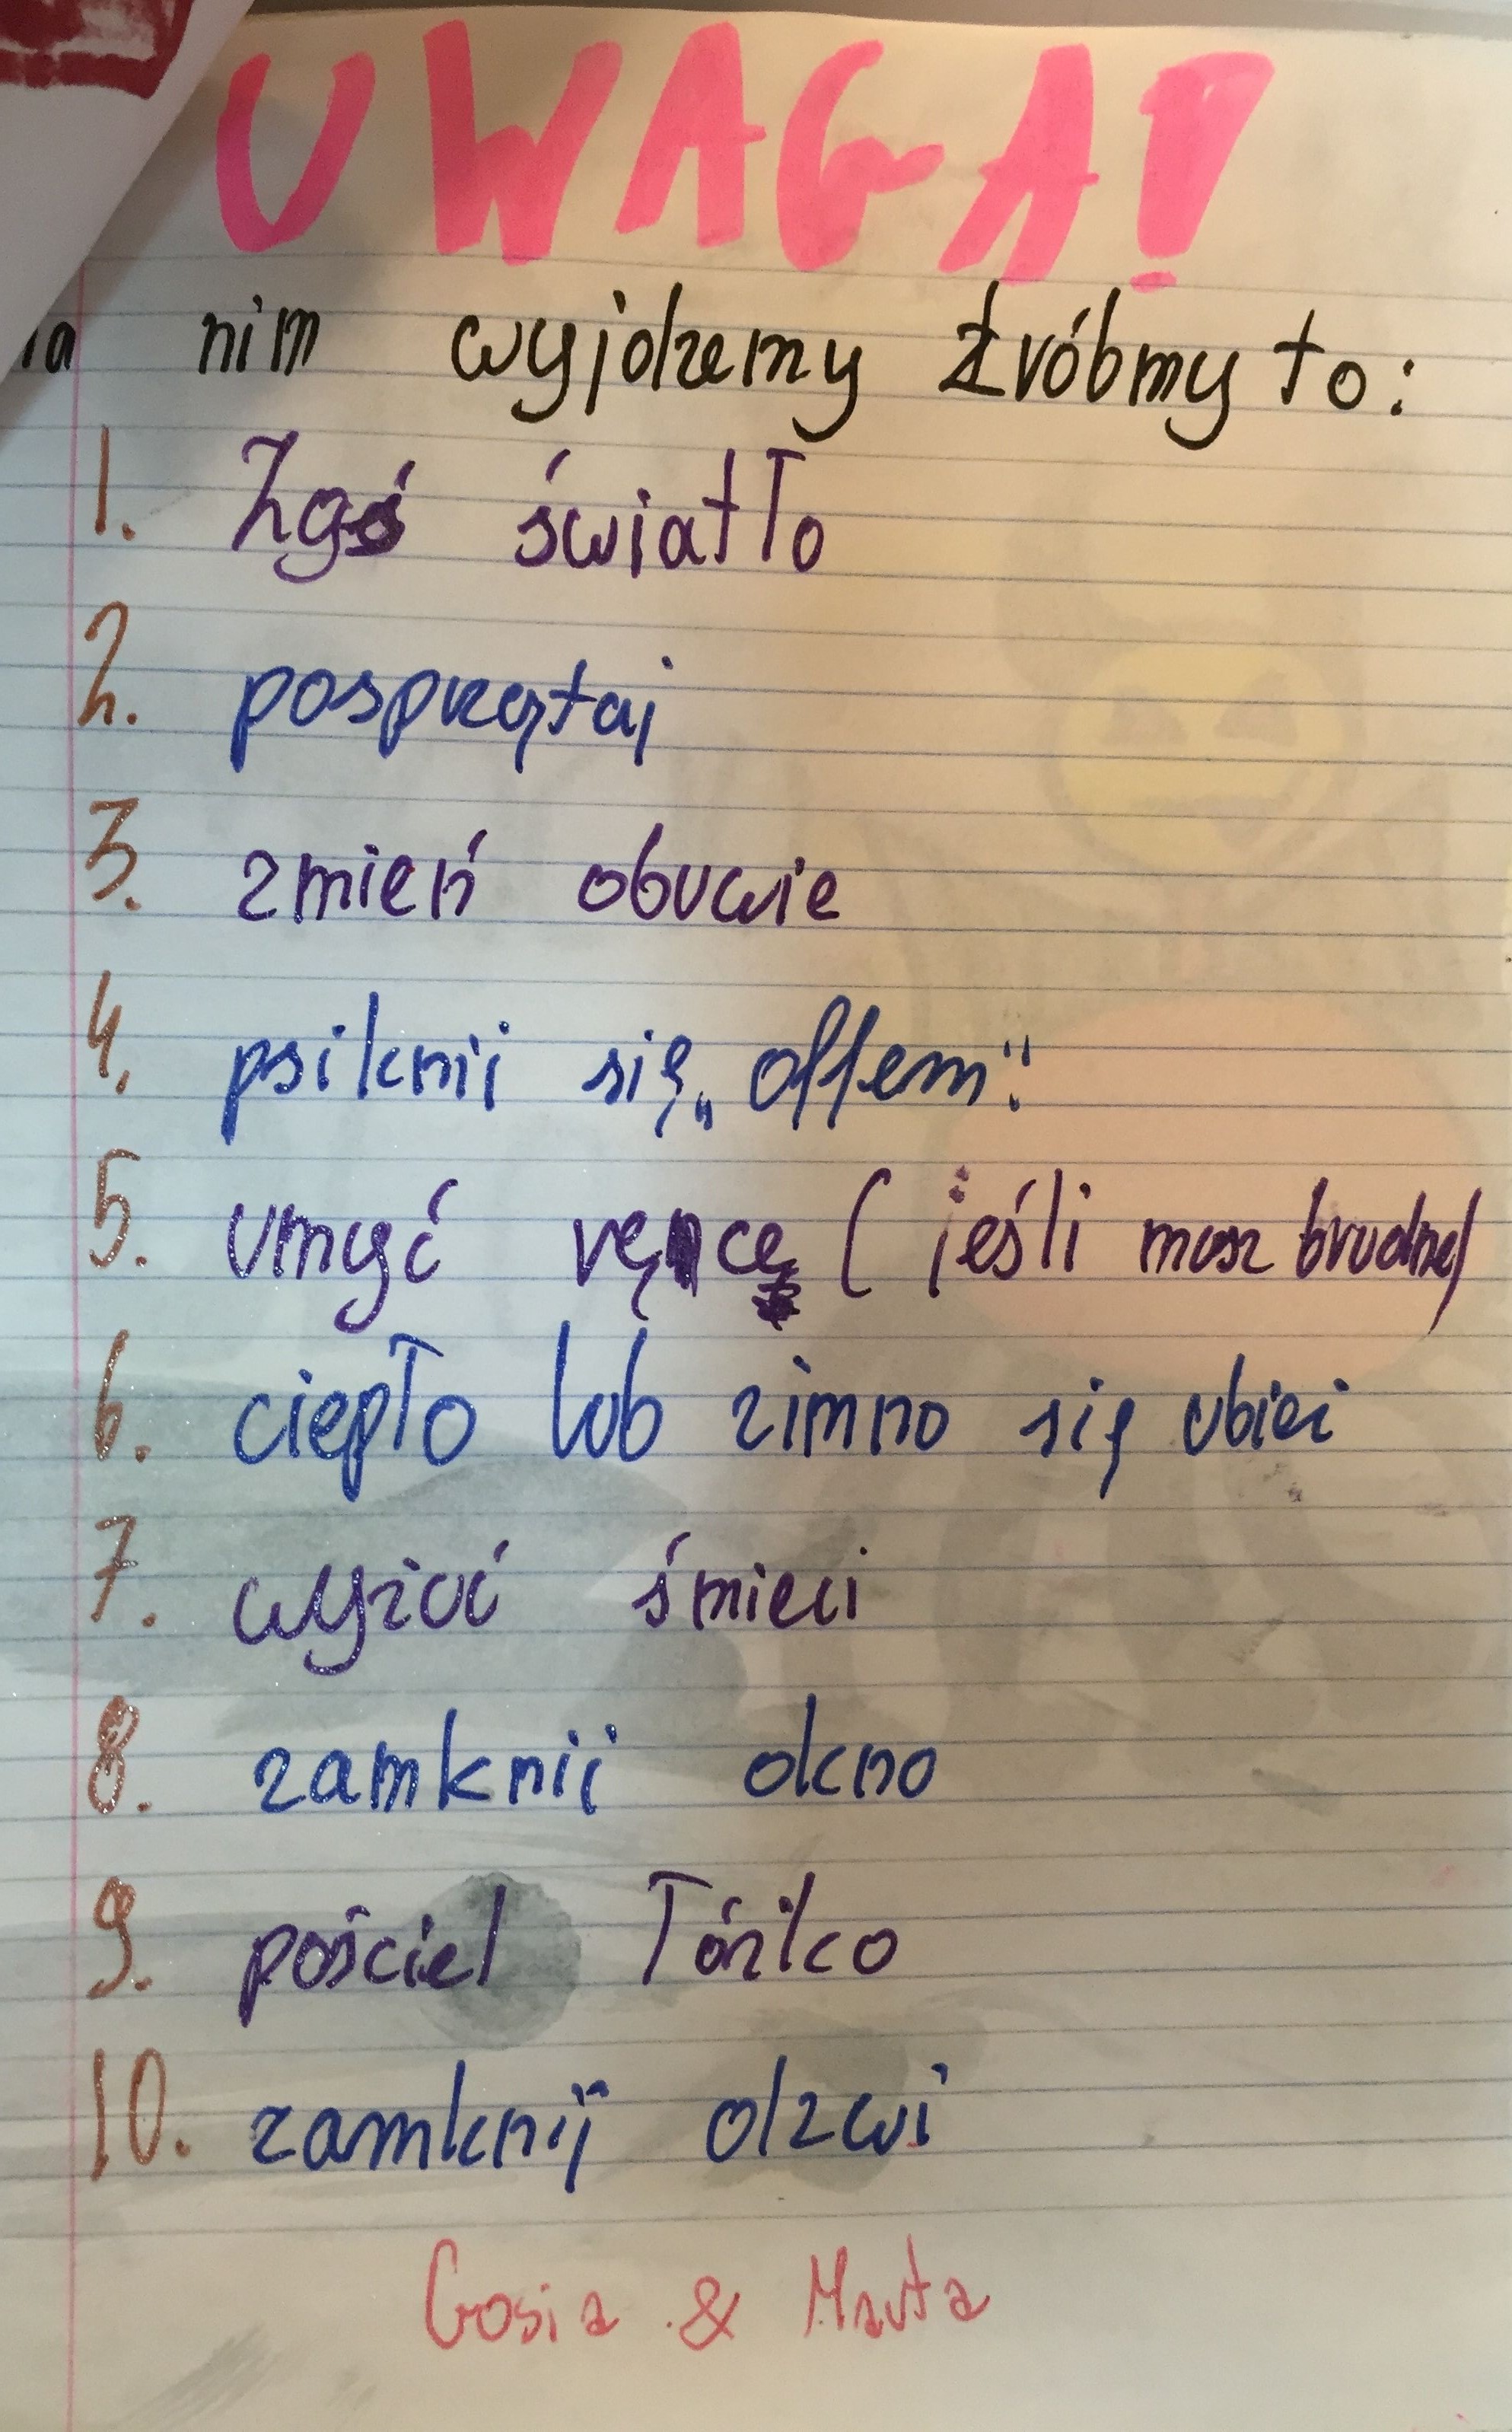 UWAGA!
nim wyjdzemy zróbmy to:
1. Zgś światło
2. posprzątaj
3. zmień obuwie
4. psiknij się „offem”.
5. umyć ręce (jeśli masz brudne)
6. ciepło lub zimno się ubiei
7. wyżuć śmieci
8. zamknij okno
9. pościel łóżko
10. zamknij drzwi
Gosia & Marta